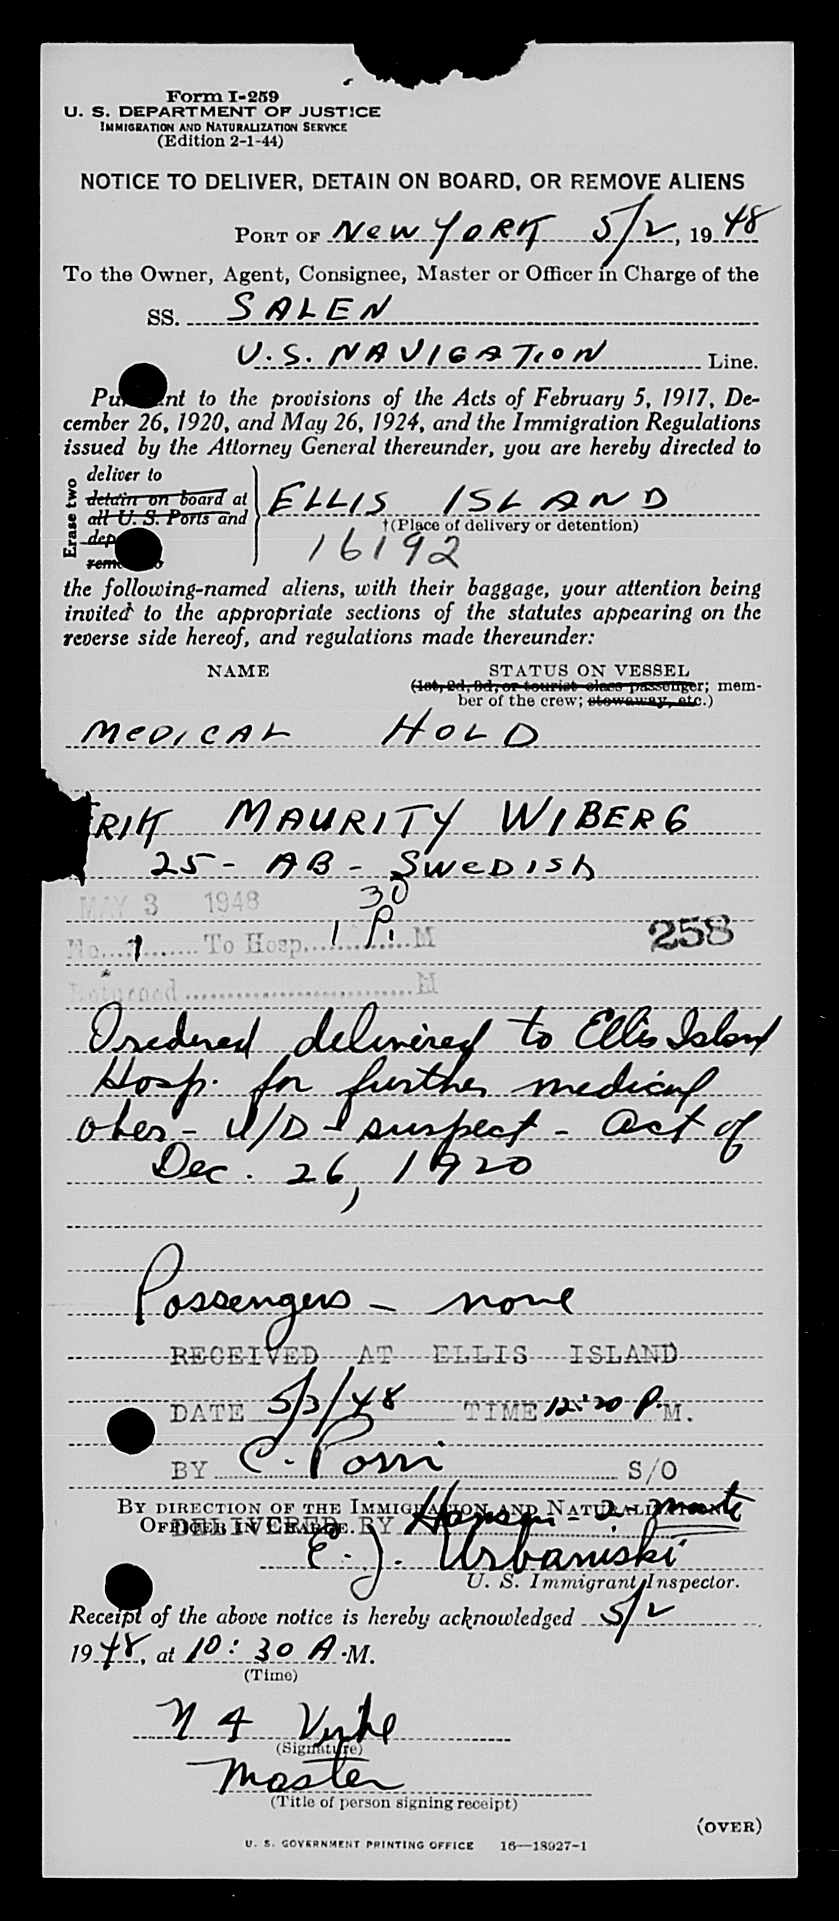 Form I-259
U. S. DEPARTMENT OF JUSTICE
IMMIGRATION AND NATURALIZATION SERVICE
(Edition 2-1-44)
NOTICE TO DELIVER, DETAIN ON BOARD, OR REMOVE ALIENS
PORT OF New YORK 5/2, 19 48
To the Owner, Agent, Consignee, Master or Officer in Charge of the
SS. SALEN
U.S. NAVIGATION Line.
Pu nt to the provisions of the Acts of February 5, 1917, De-
cember 26, 1920, and May 26, 1924, and the Immigration Regulations
issued by the Attorney General thereunder, you are hereby directed to
Erase two
deliver to
detain on board at
all U. S. Ports and
dep
rem
ELLIS ISLAND
†(Place of delivery or detention)
16192
the following-named aliens, with their baggage, your attention being
invited to the appropriate sections of the statutes appearing on the
reverse side hereof, and regulations made thereunder:
NAME STATUS ON VESSEL
(1st, 2d, 3d, or tourist class passenger; mem-
ber of the crew; stowaway, etc.)
MeDICAL HOLD
ERIK MAURITY WIBERG
25 - AB - SWeDISh
MAY 3 1948
No. 1 To Hosp. 1 30 P. M
258
Returned M
Oredered delivered to Ellis Island
Hosp. for further medical
obser - V/D - suspect - Act of
Dec. 26, 1920
Passengers - none
RECEIVED AT ELLIS ISLAND
DATE 5/3/48 TIME 12:20 P.M.
BY C. S/O
BY DIRECTION OF THE IMMIGRATION AND NATURALIZATION
OFFICER IN CHARGE.
DELIVERED BY Hansen - 2 - mate
E. J. Urbaniski
U. S. Immigrant Inspector.
Receipt of the above notice is hereby acknowledged 5/2
19 48, at 10:30 A.M.
(Time)
(Signature)
Master
(Title of person signing receipt)
(OVER)
U. S. GOVERNMENT PRINTING OFFICE 16—18927-1